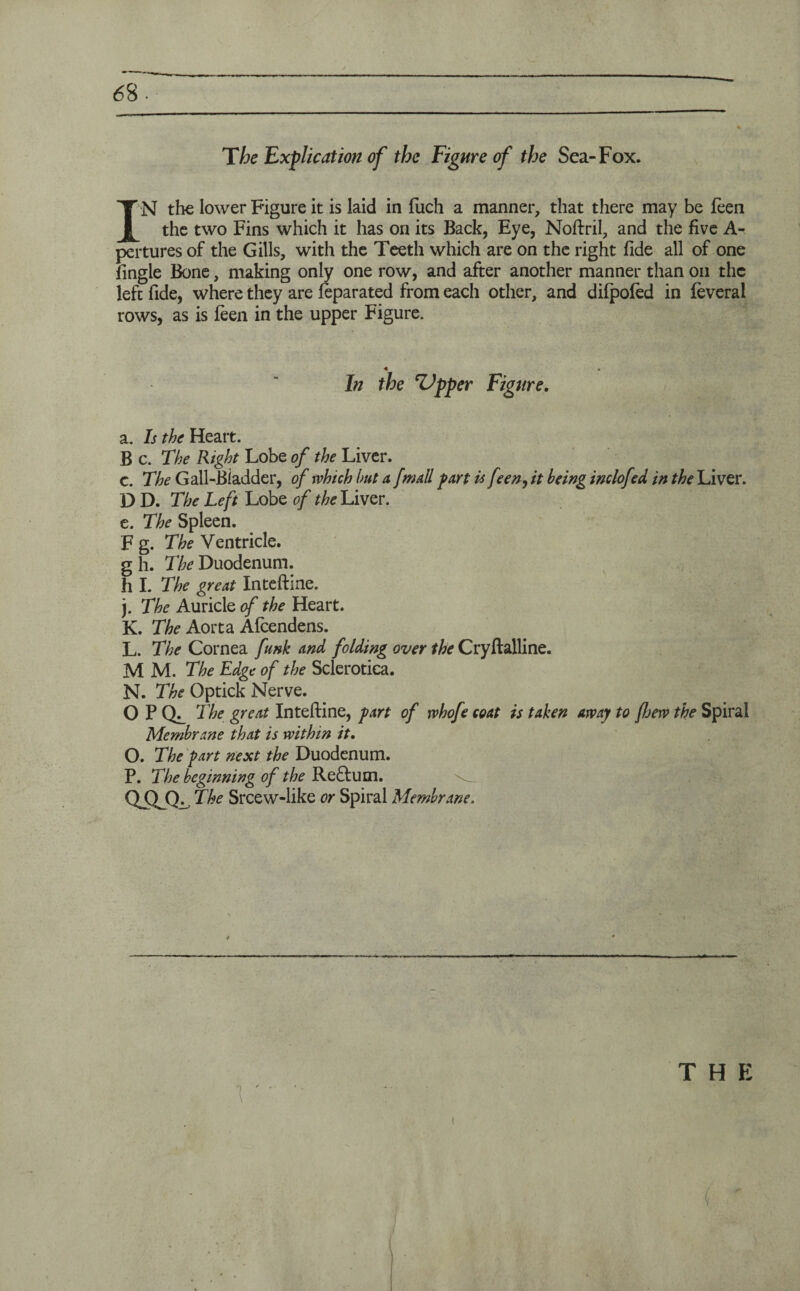 68.
The Explication of the Figure of the Sea-Fox.
IN the lower Figure it is laid in ſuch a manner, that there may be ſeen
the two Fins which it has on its Back, Eye, Noſtril, and the five A-
pertures of the Gills, with the Teeth which are on the right ſide all of one
ſingle Bone, making only one row, and after another manner than on the
left ſide, where they are ſeparated from each other, and diſpoſed in ſeveral
rows, as is ſeen in the upper Figure.
In the Upper Figure.
a. Is the Heart.
B c. The Right Lobe of the Liver.
c. The Gall-Bladder, of which but a ſmall part is ſeen, it being incloſed in the Liver.
D D. The Left Lobe of the Liver.
e. The Spleen.
F g. The Ventricle.
g h. The Duodenum.
h I. The great Inteſtine.
j. The Auricle of the Heart.
K. The Aorta Aſcendens.
L. The Cornea ſunk and folding over the Cryſtalline.
M M. The Edge of the Sclerotica.
N. The Optick Nerve.
O P Q. The great Inteſtine, part of whoſe coat is taken away to ſhew the Spiral
Membrane that is within it.
O. The part next the Duodenum.
P. The beginning of the Rectum.
QQQ. The Srcew-like or Spiral Membrane.
THE